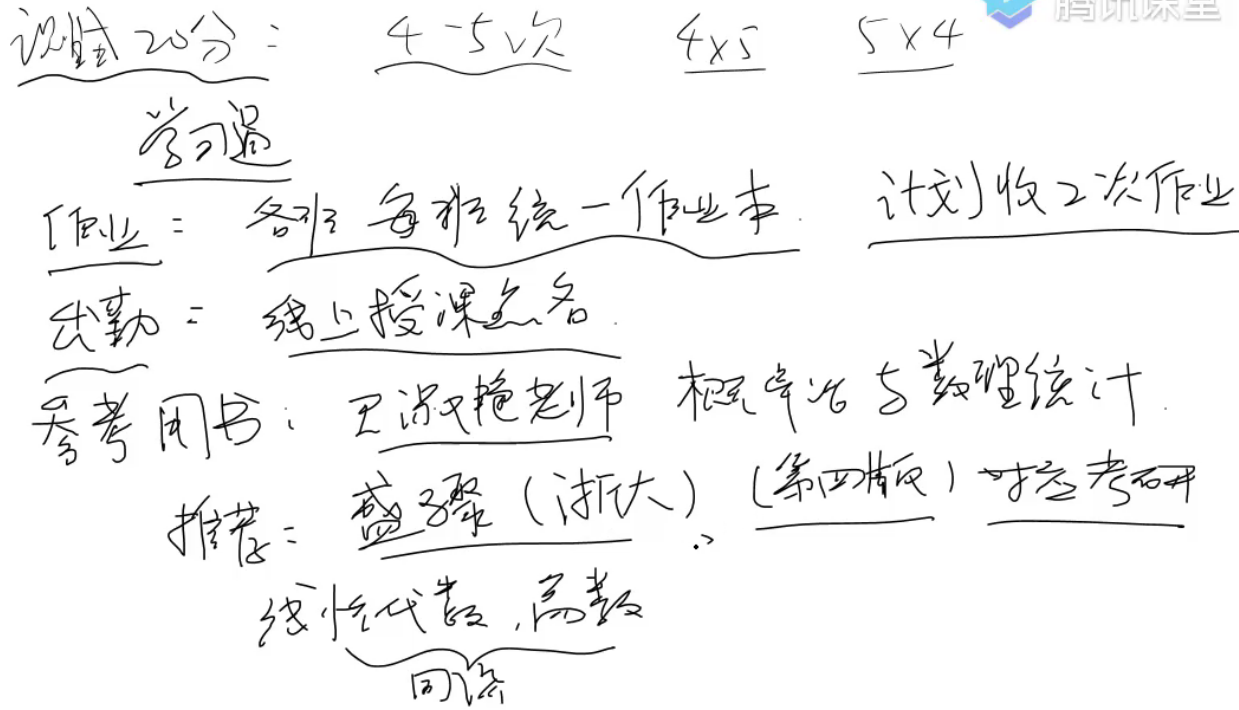 腾讯课堂
测试20分: 4-5次 4×5 5×4
学习通
作业: 各班 每班统一作业本. 计划收2次作业
出勤: 线上授课点名.
参考用书: 王淑艳老师 概率论与数理统计.
推荐: 盛骤(浙大) (第四版) 对应考研
线性代数,高数
同济